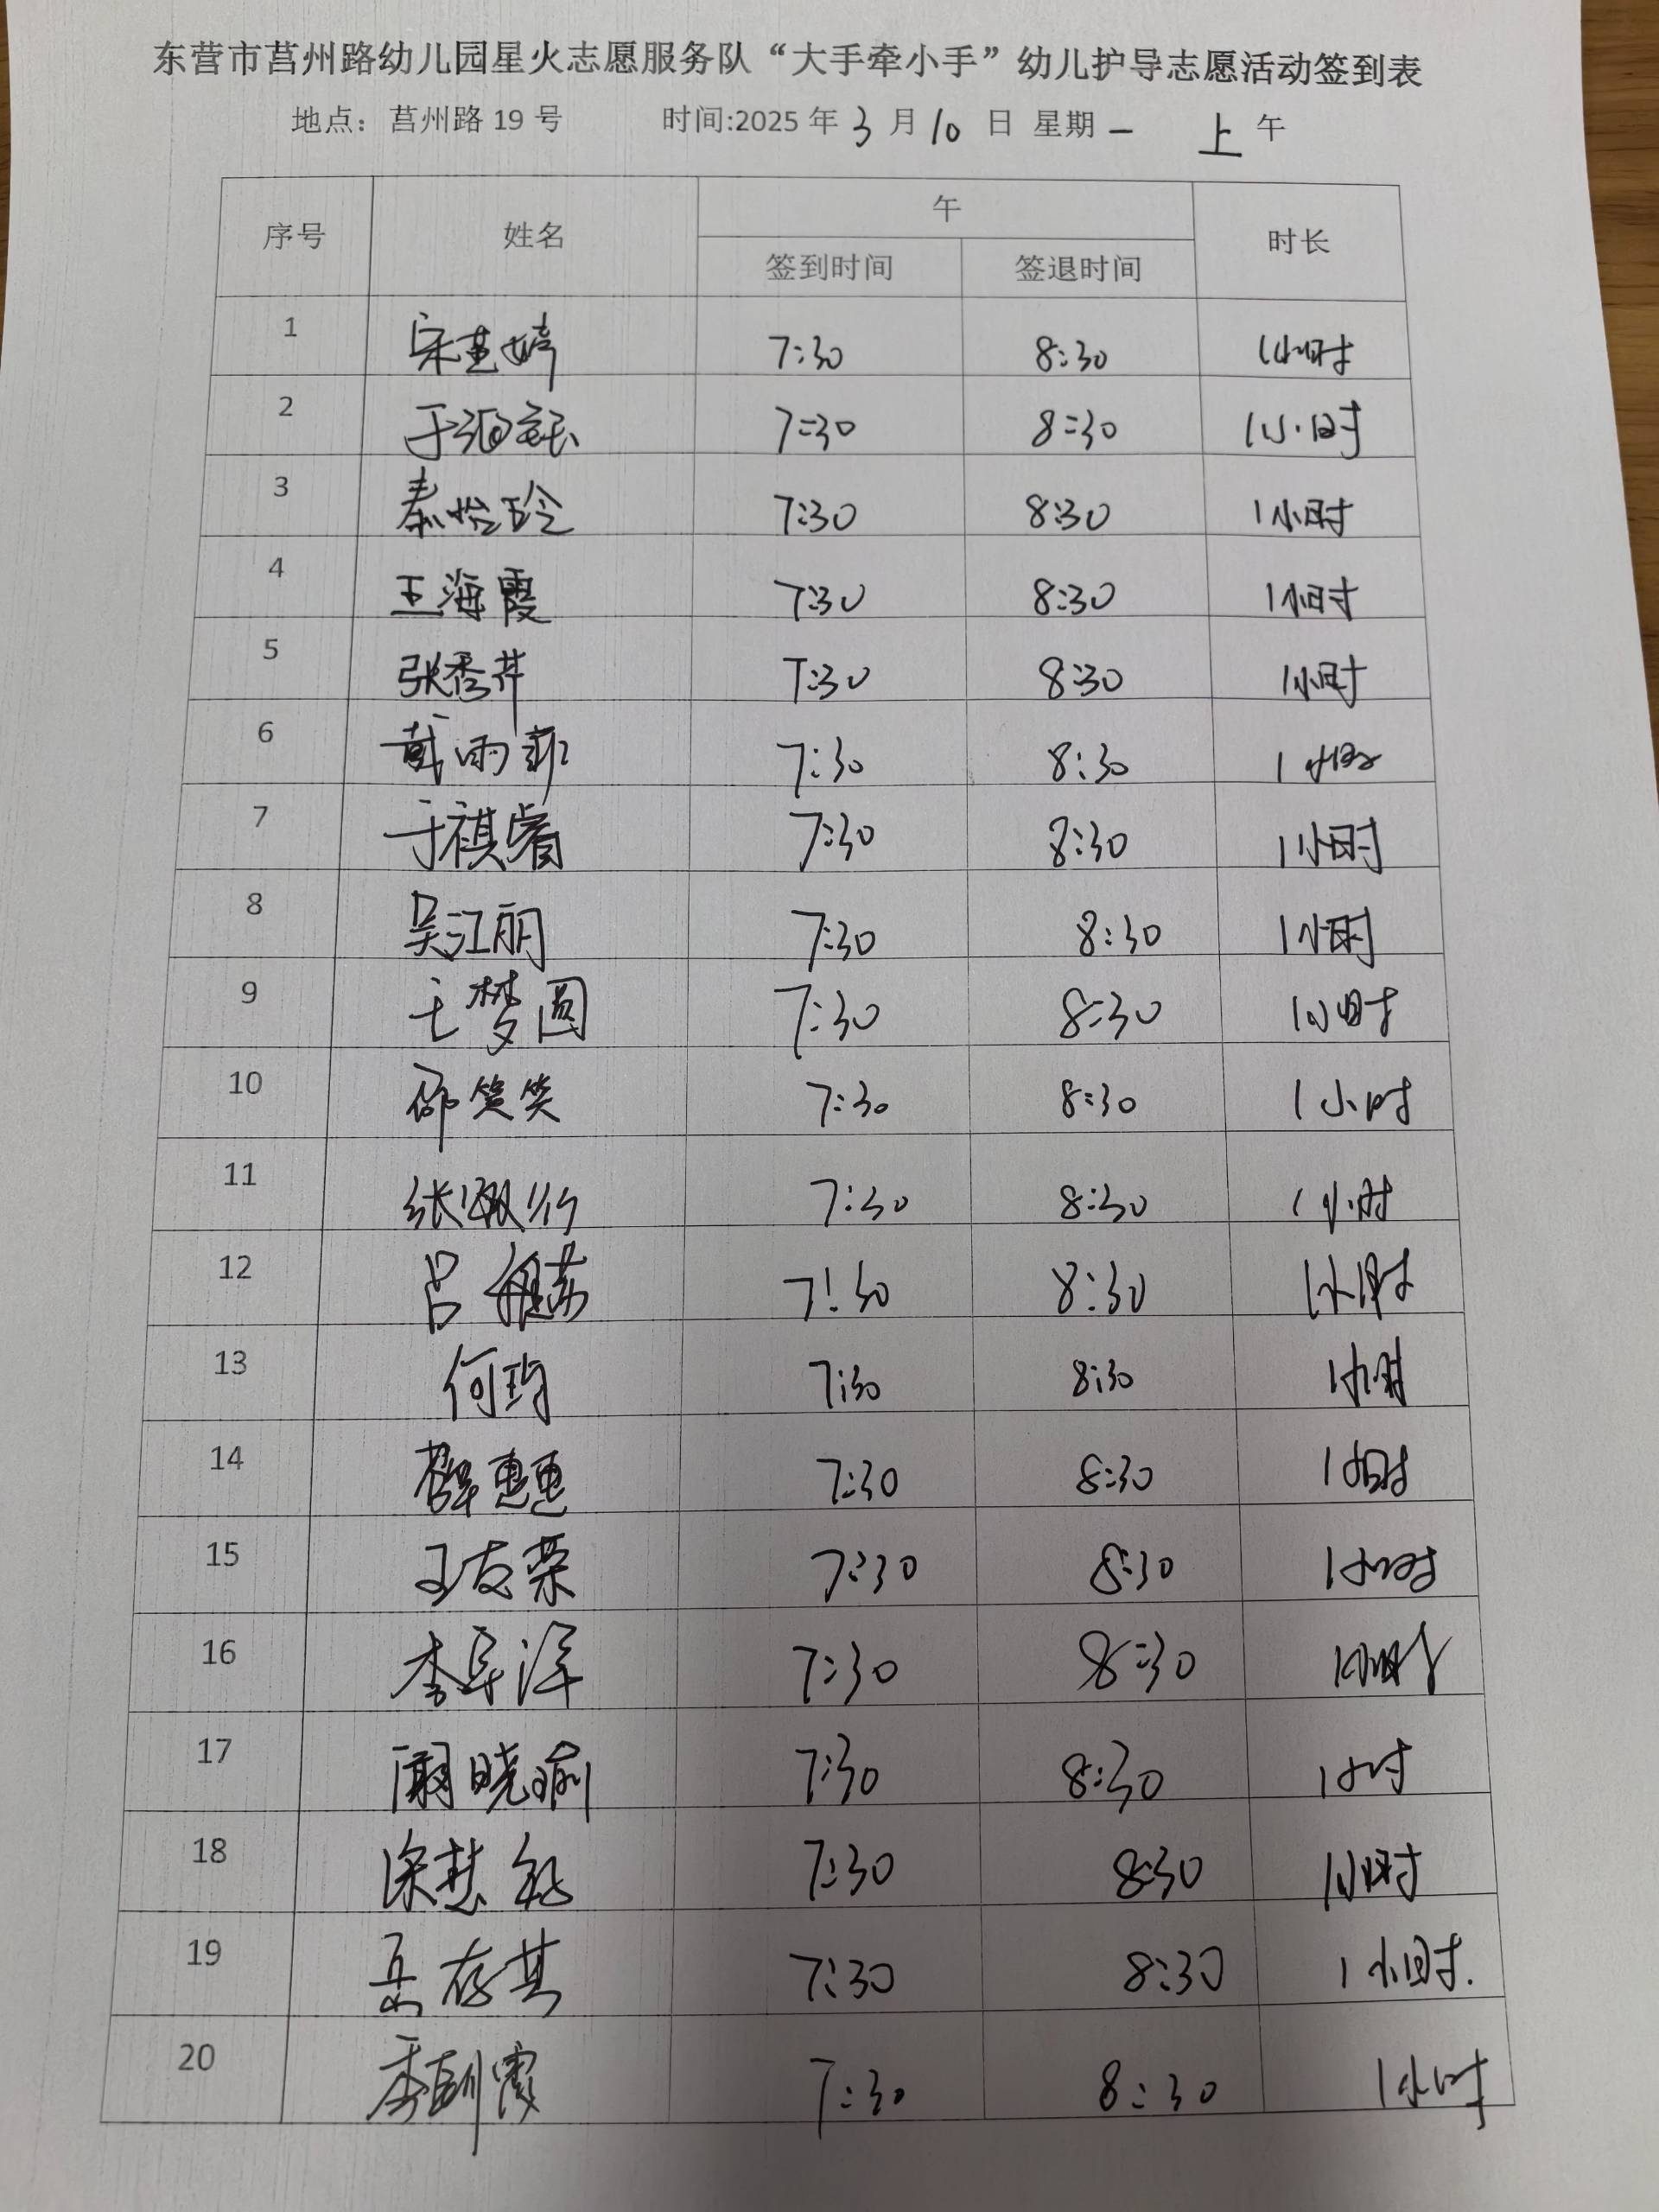 东营市莒州路幼儿园星火志愿服务队“大手牵小手”幼儿护导志愿活动签到表
地点：莒州路 19 号 时间:2025 年 3 月 10 日 星期 一 上 午
序号 姓名 午 时长
签到时间 签退时间
1 宋婷 7:30 8:30 1小时
2 于 7:30 8:30 1小时
3 秦怡玲 7:30 8:30 1小时
4 王海霞 7:30 8:30 1小时
5 张秀芹 7:30 8:30 1小时
6 戴雨菲 7:30 8:30 1小时
7 于祺睿 7:30 8:30 1小时
8 吴江丽 7:30 8:30 1小时
9 王梦圆 7:30 8:30 1小时
10 邵笑笑 7:30 8:30 1小时
11 张 7:30 8:30 1小时
12 吕 7:30 8:30 1小时
13 何均 7:30 8:30 1小时
14 薛惠惠 7:30 8:30 1小时
15 王友荣 7:30 8:30 1小时
16 李 7:30 8:30 1小时
17 阚晓瑜 7:30 8:30 1小时
18 徐慧 7:30 8:30 1小时
19 岳存其 7:30 8:30 1小时.
20 霞 7:30 8:30 1小时